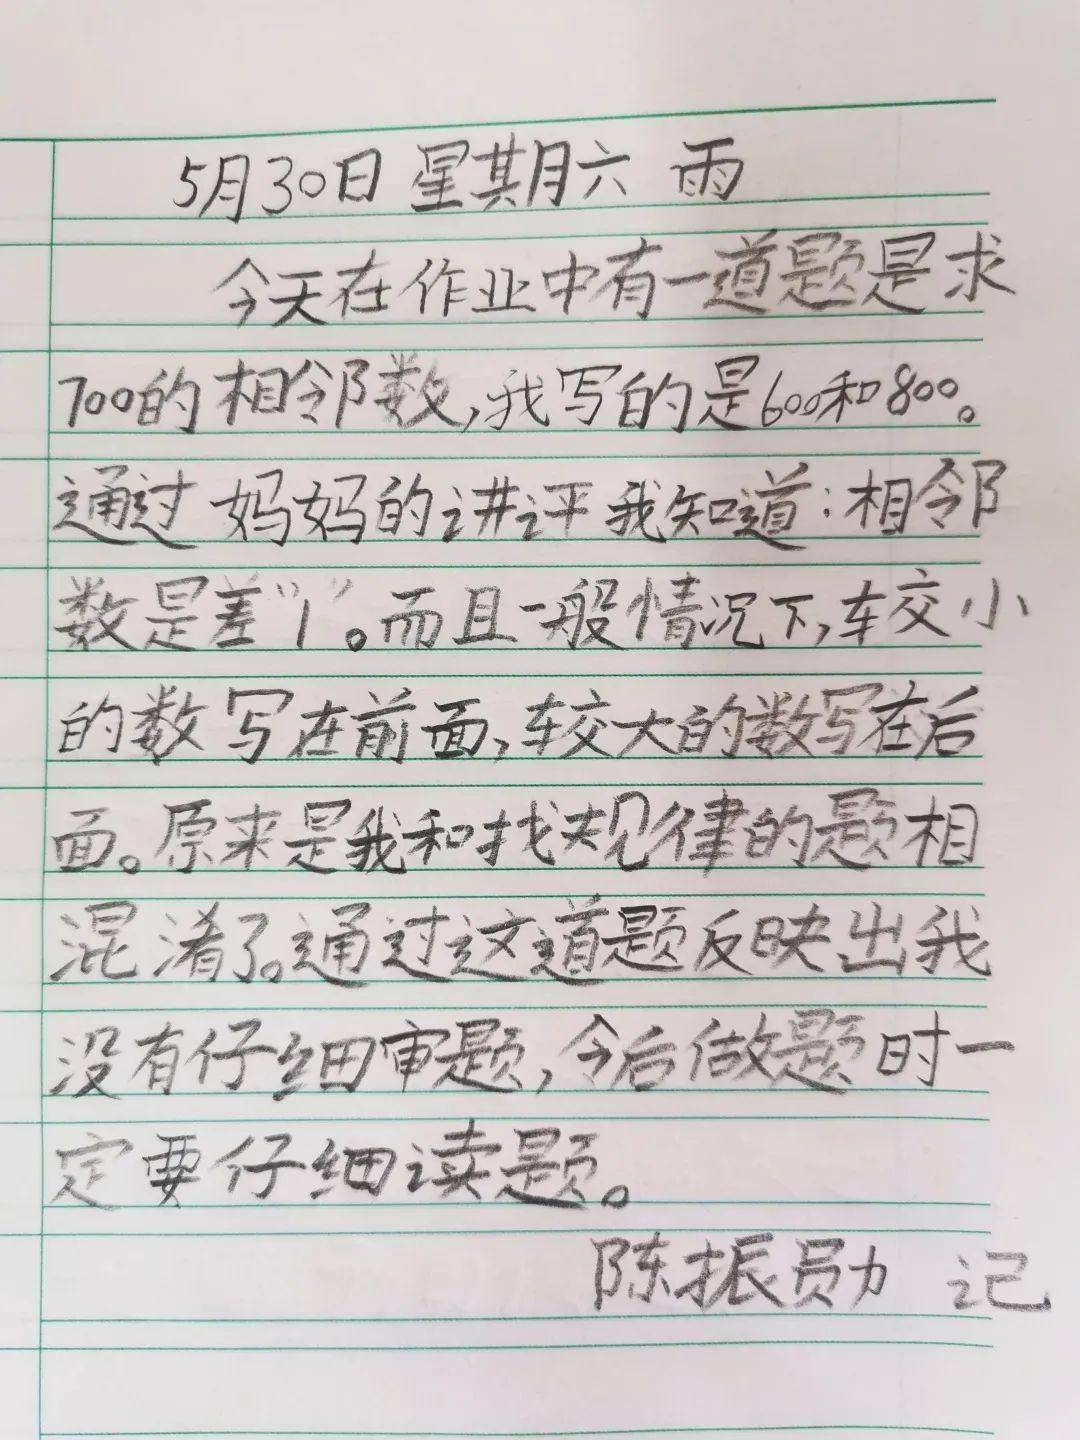 5月30日 星期六 雨
今天在作业中有一道题是求
700的相邻数,我写的是600和800。
通过妈妈的讲评我知道:相邻
数是差“1”。而且一般情况下,较小
的数写在前面,较大的数写在后
面。原来是我和找规律的题相
混淆了。通过这道题反映出我
没有仔细审题,今后做题时一
定要仔细读题。
陈振勋 记